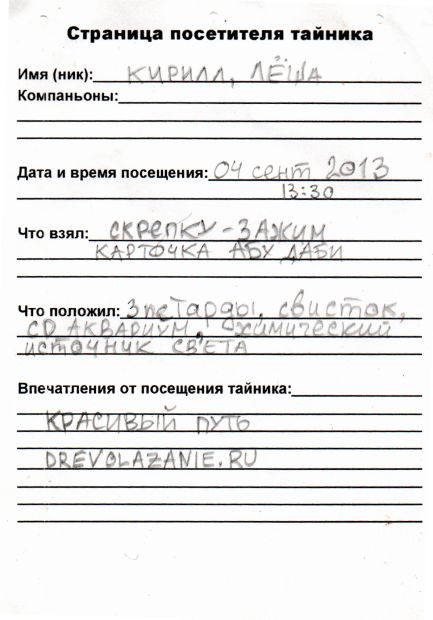 Страница посетителя тайника
Имя (ник): КИРИЛЛ, ЛЁША
Компаньоны:
Дата и время посещения: 04 сент 2013
13:30
Что взял: СКРЕПКУ-ЗАЖИМ
КАРТОЧКА АБУ ДАБИ
Что положил: 3 петарды, свисток,
CD АКВАРИУМ, ХИМИЧЕСКИЙ
ИСТОЧНИК СВЕТА
Впечатления от посещения тайника:
КРАСИВЫЙ ПУТЬ
DREVOLAZANIE.RU